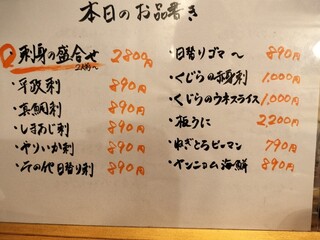 本日のお品書き
刺身の盛合せ 2800円
2人前〜
・平政刺 890円
・真鯛刺 890円
・しまあじ刺 890円
・やりいか刺 890円
・その他日替り刺 890円
・日替りゴマ〜 890円
・くじらの赤身刺 1,000円
・くじらのウネスライス 1,000円
・板うに 2200円
・ねぎとろピーマン 790円
・ヤンニョム海鮮 890円